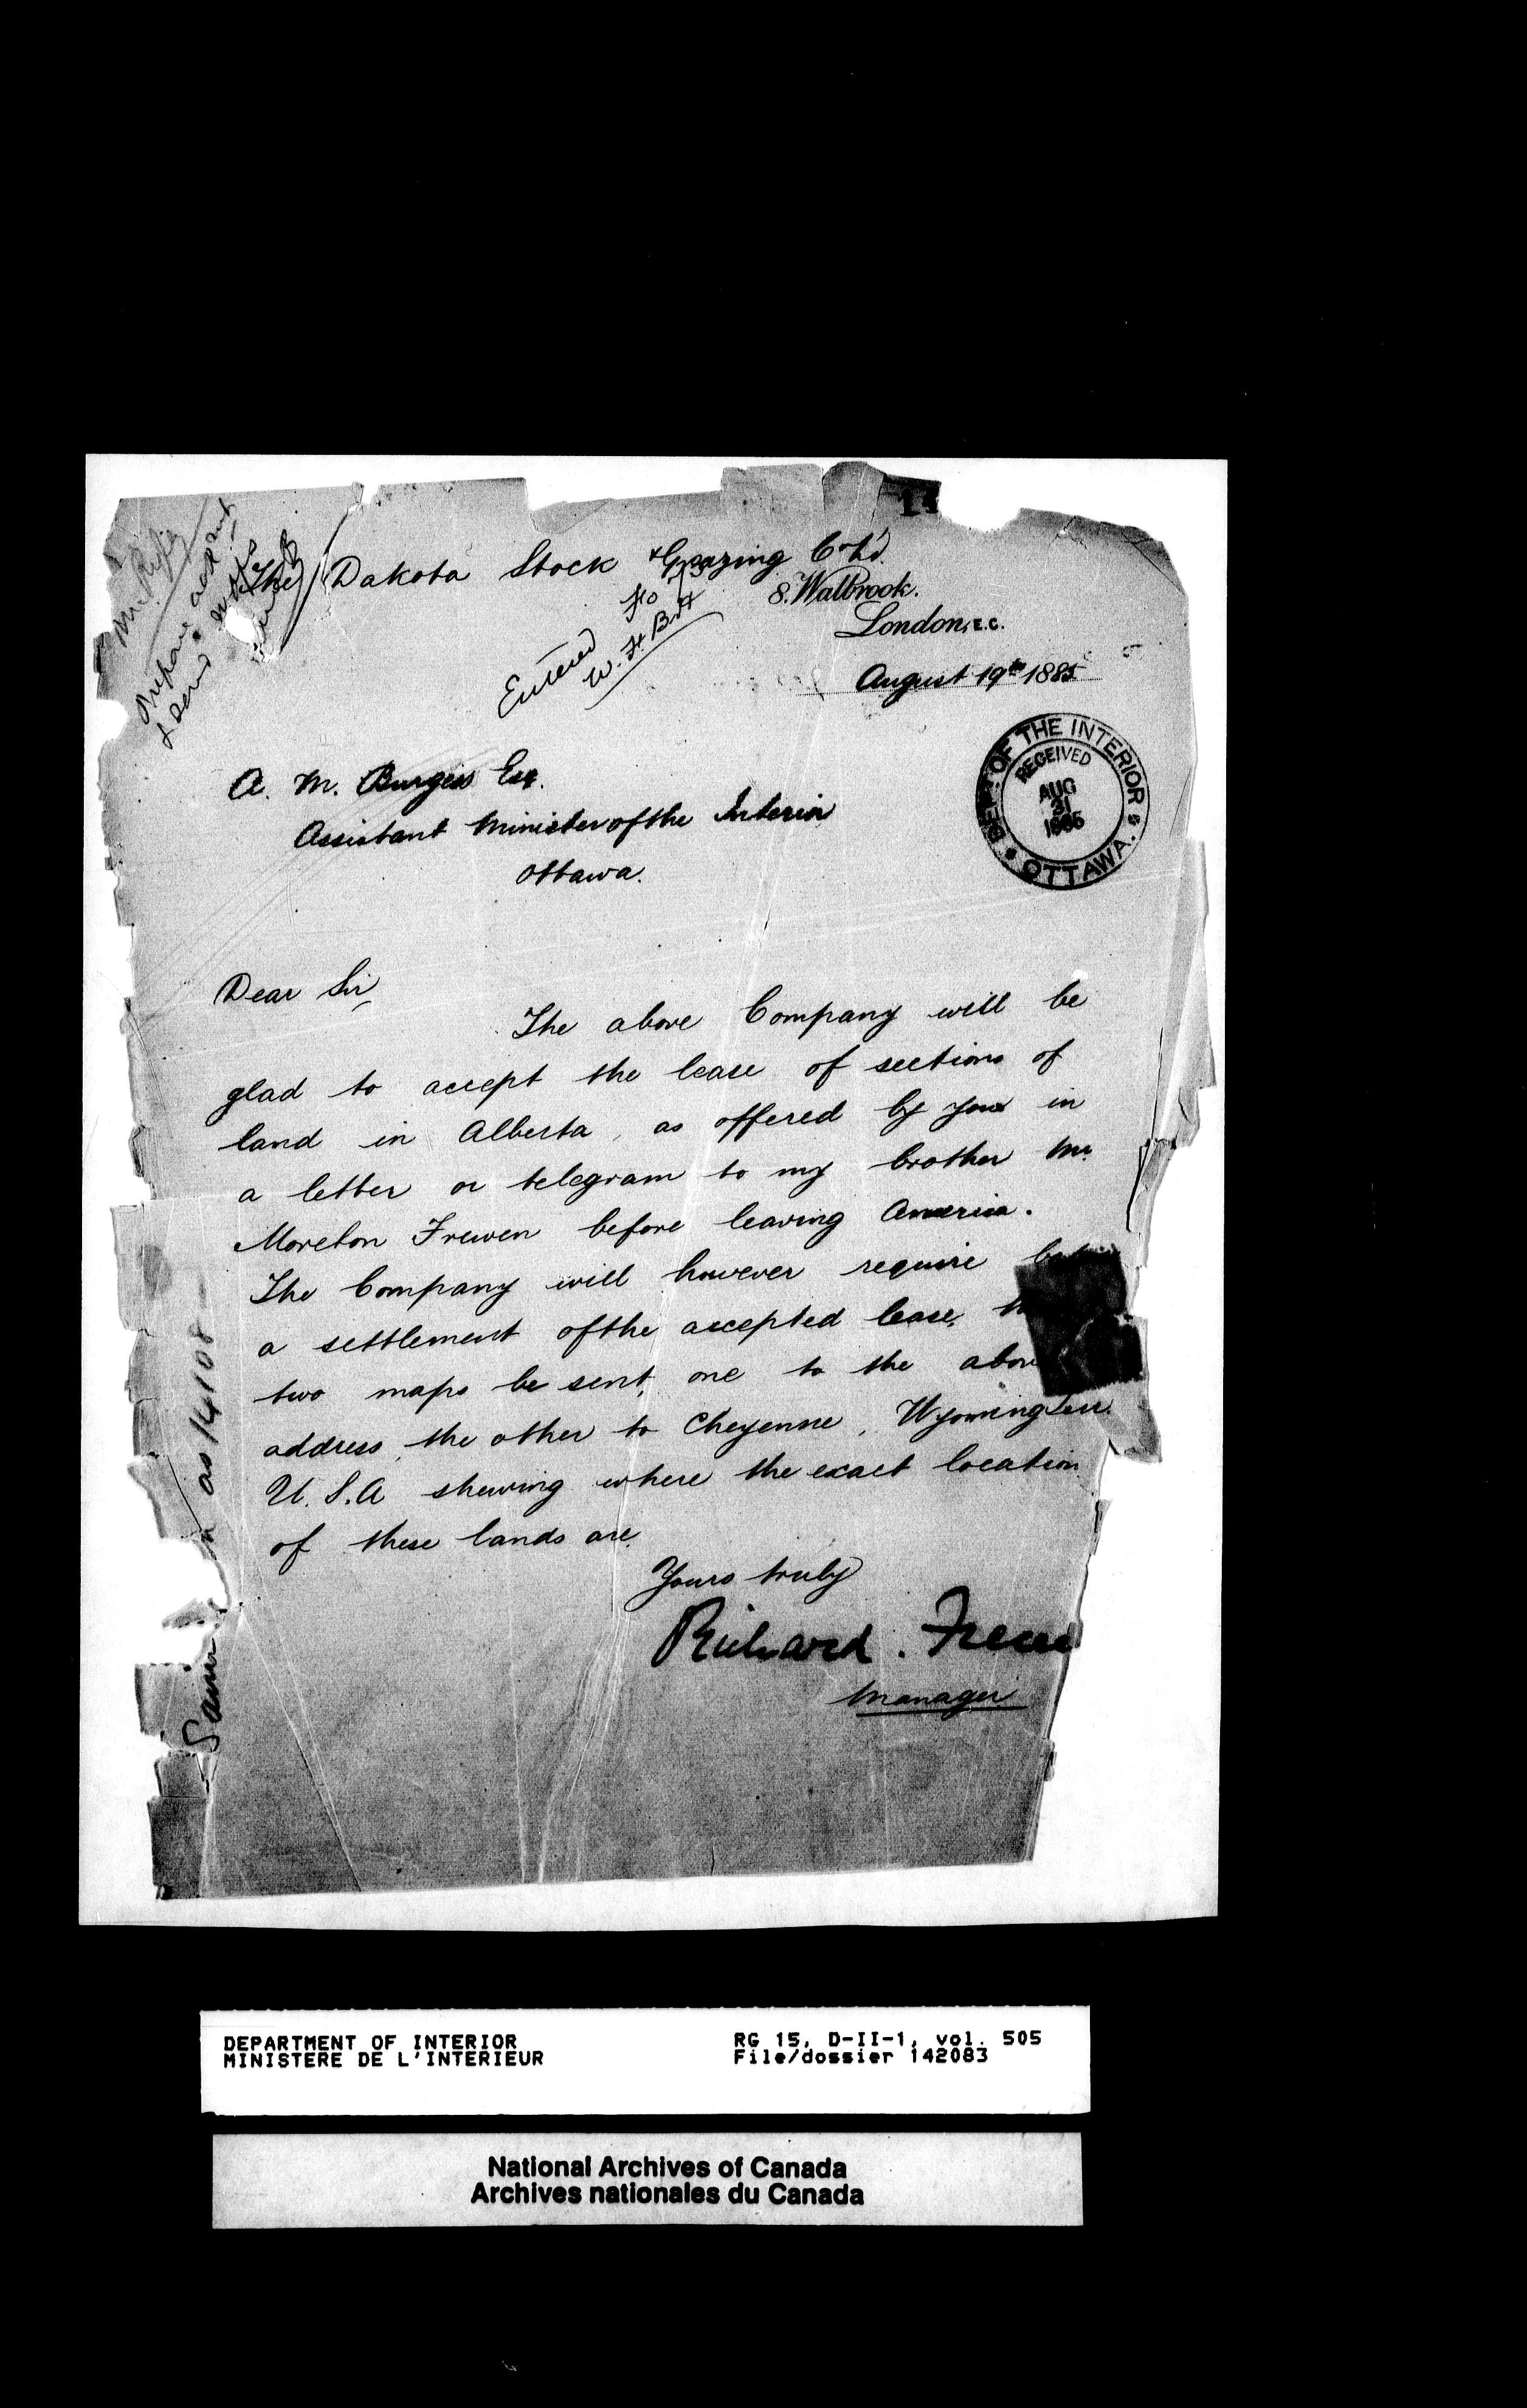 The Dakota Stock & Grazing Co Ld.
8. Walbrook.
London, E.C.
August 19th 1885
Entered
W. H. B
prepare
A. M. Burgess Esq.
Assistant Minister of the Interior
Ottawa.
DEPT. OF THE INTERIOR
RECEIVED
AUG
31
1885
OTTAWA.
Dear Sir,
The above Company will be
glad to accept the lease of sections of
land in Alberta, as offered by you in
a letter or telegram to my brother Mr.
Moreton Frewen before leaving America.
The Company will however require
a settlement of the accepted lease,
two maps be sent, one to the
address, the other to Cheyenne, Wyoming Terr.
U.S.A shewing where the exact location
of these lands are.
Yours truly
Richard. Frewe
Manager
as 14108
DEPARTMENT OF INTERIOR
MINISTERE DE L'INTERIEUR
RG 15, D-II-1, vol. 505
File/dossier 142083
National Archives of Canada
Archives nationales du Canada